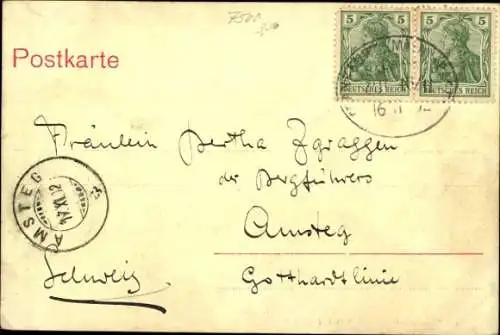 7500
5 5 5 5
DEUTSCHES REICH DEUTSCHES REICH
Postkarte
16 11
Fräulein Bertha Zgraggen
der Bergführers
Amsteg
Gotthardtlinie
Schweiz
AMSTEG
17 XI 02